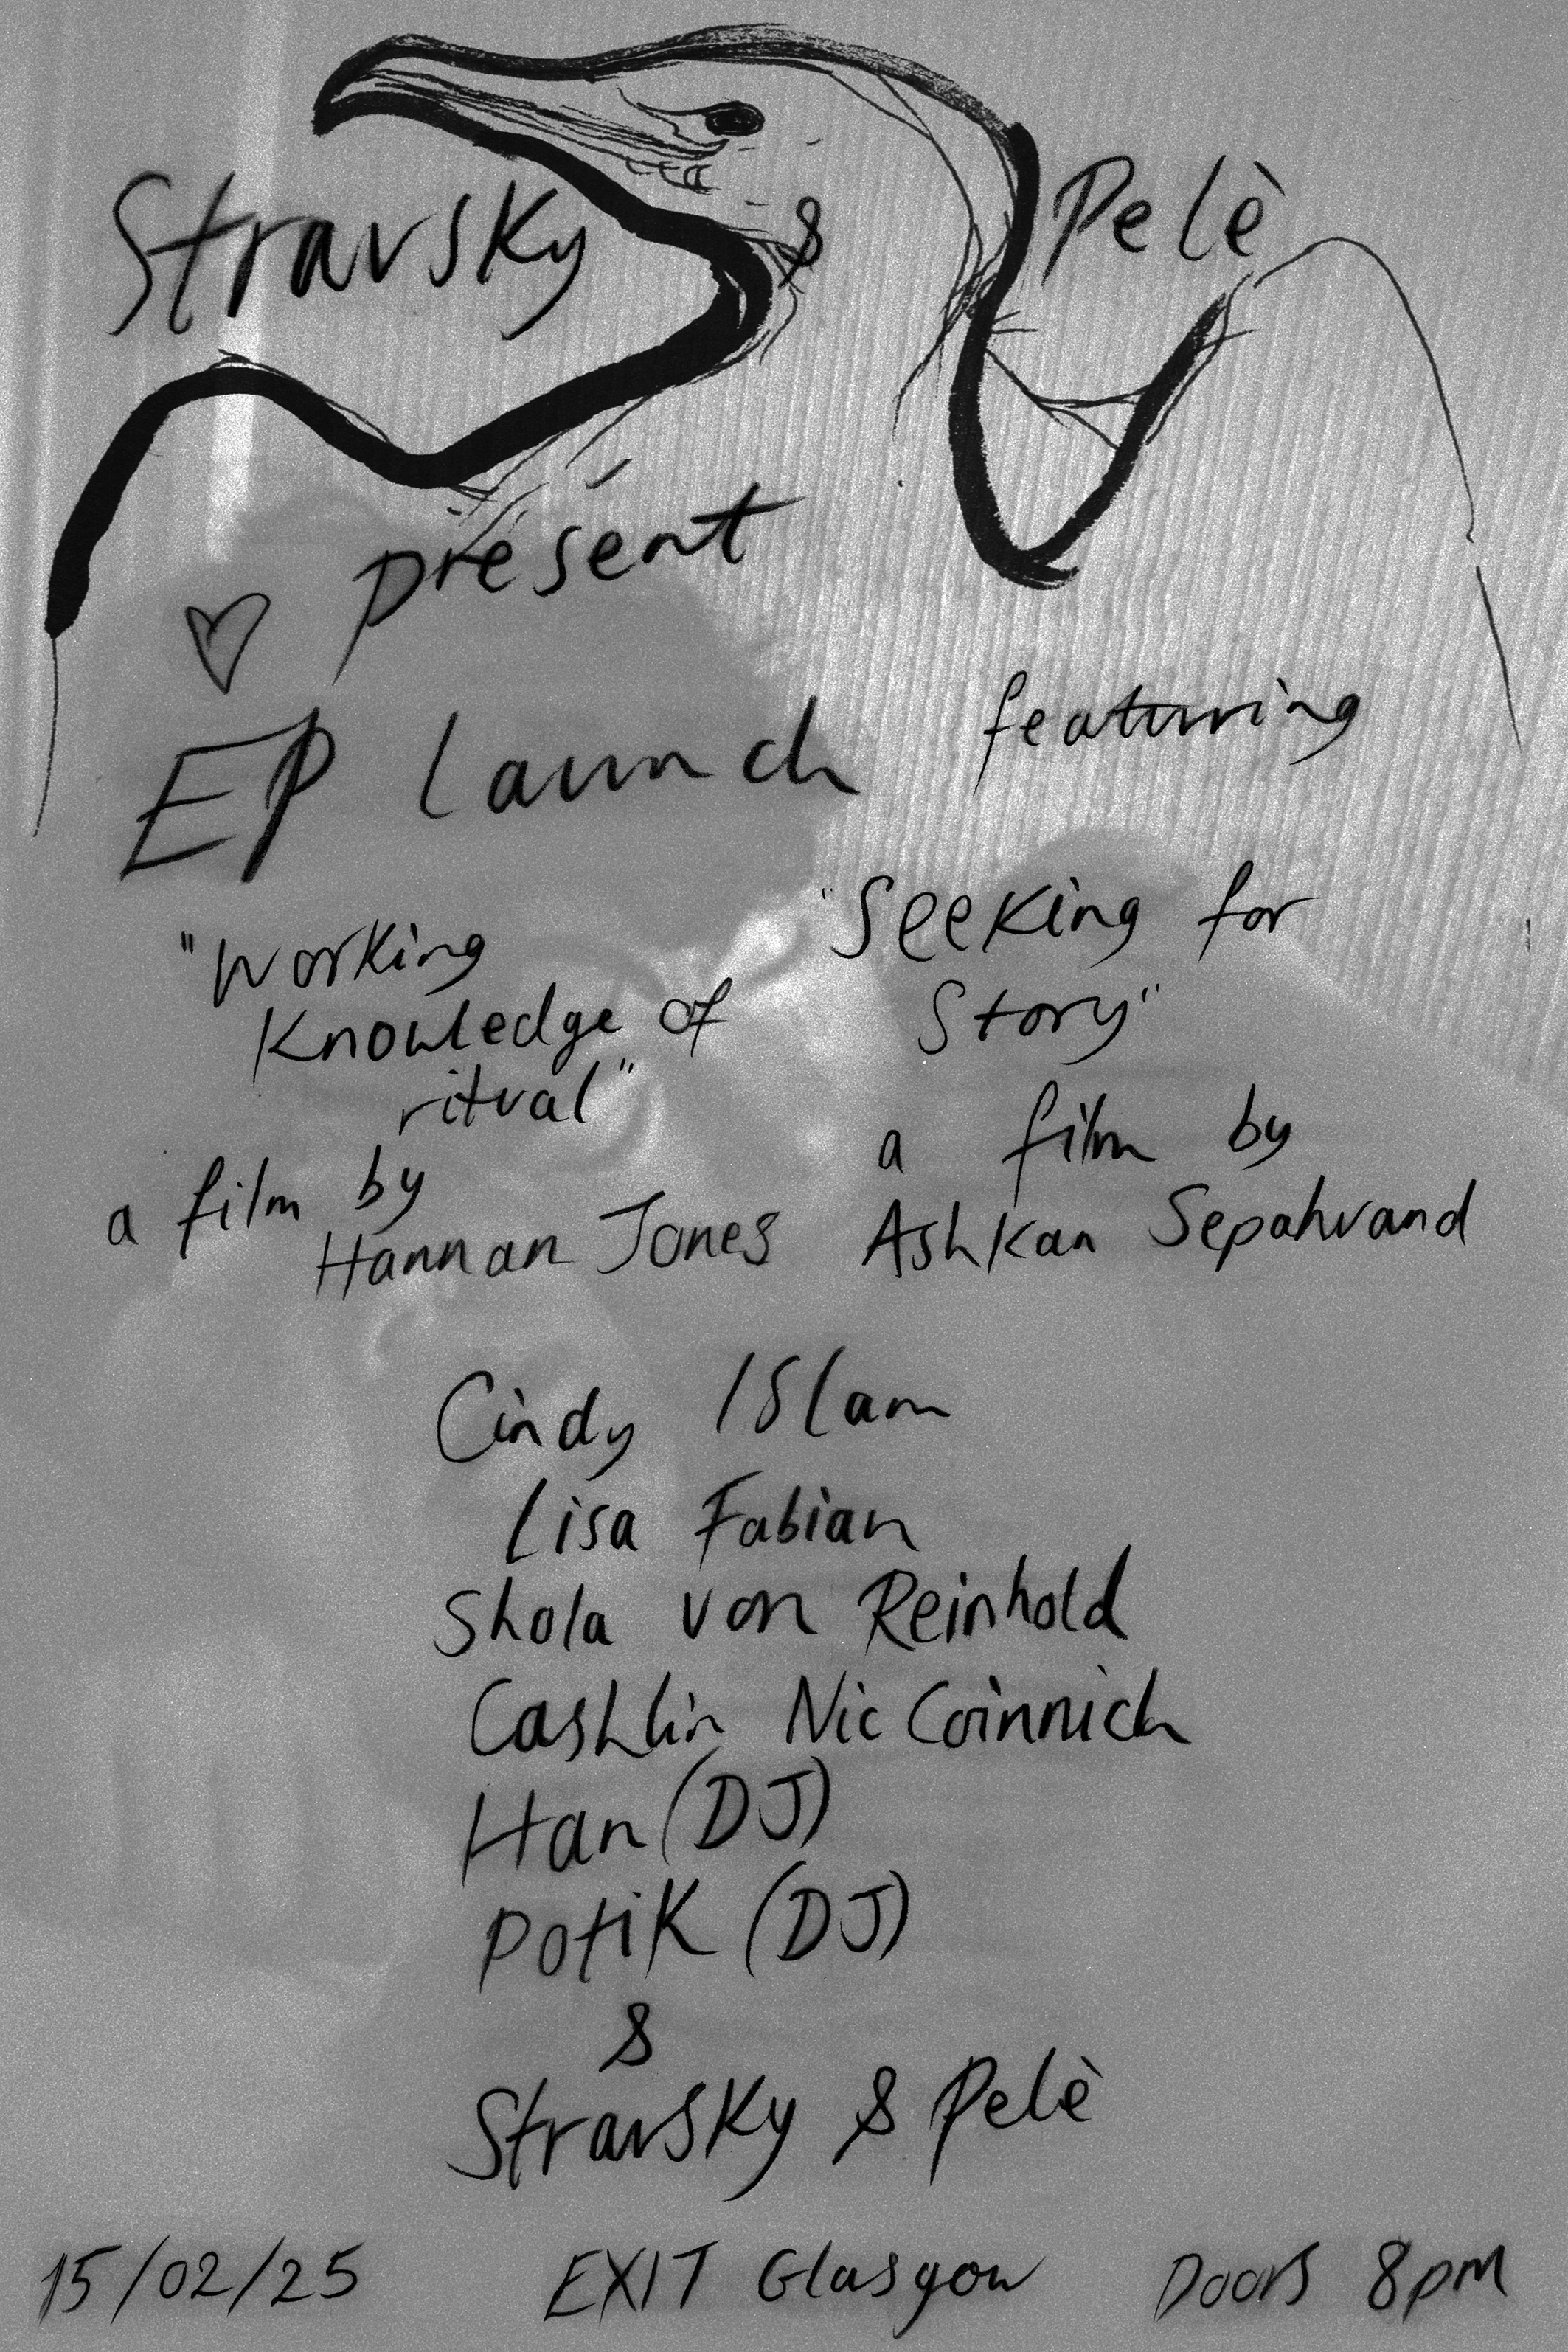 Stravsky & Pelè
présent
EP launch
featuring
"Working
Knowledge of
ritual"
a film by
Hannan Jones
"Seeking for
Story"
a film by
Ashkan Sepahvand
Cindy Islam
Lisa Fabian
Shola von Reinhold
Cashlin Nic Coinnich
Han (DJ)
Potik (DJ)
&
Stravsky & Pelè
15/02/25 EXIT Glasgow Doors 8pm